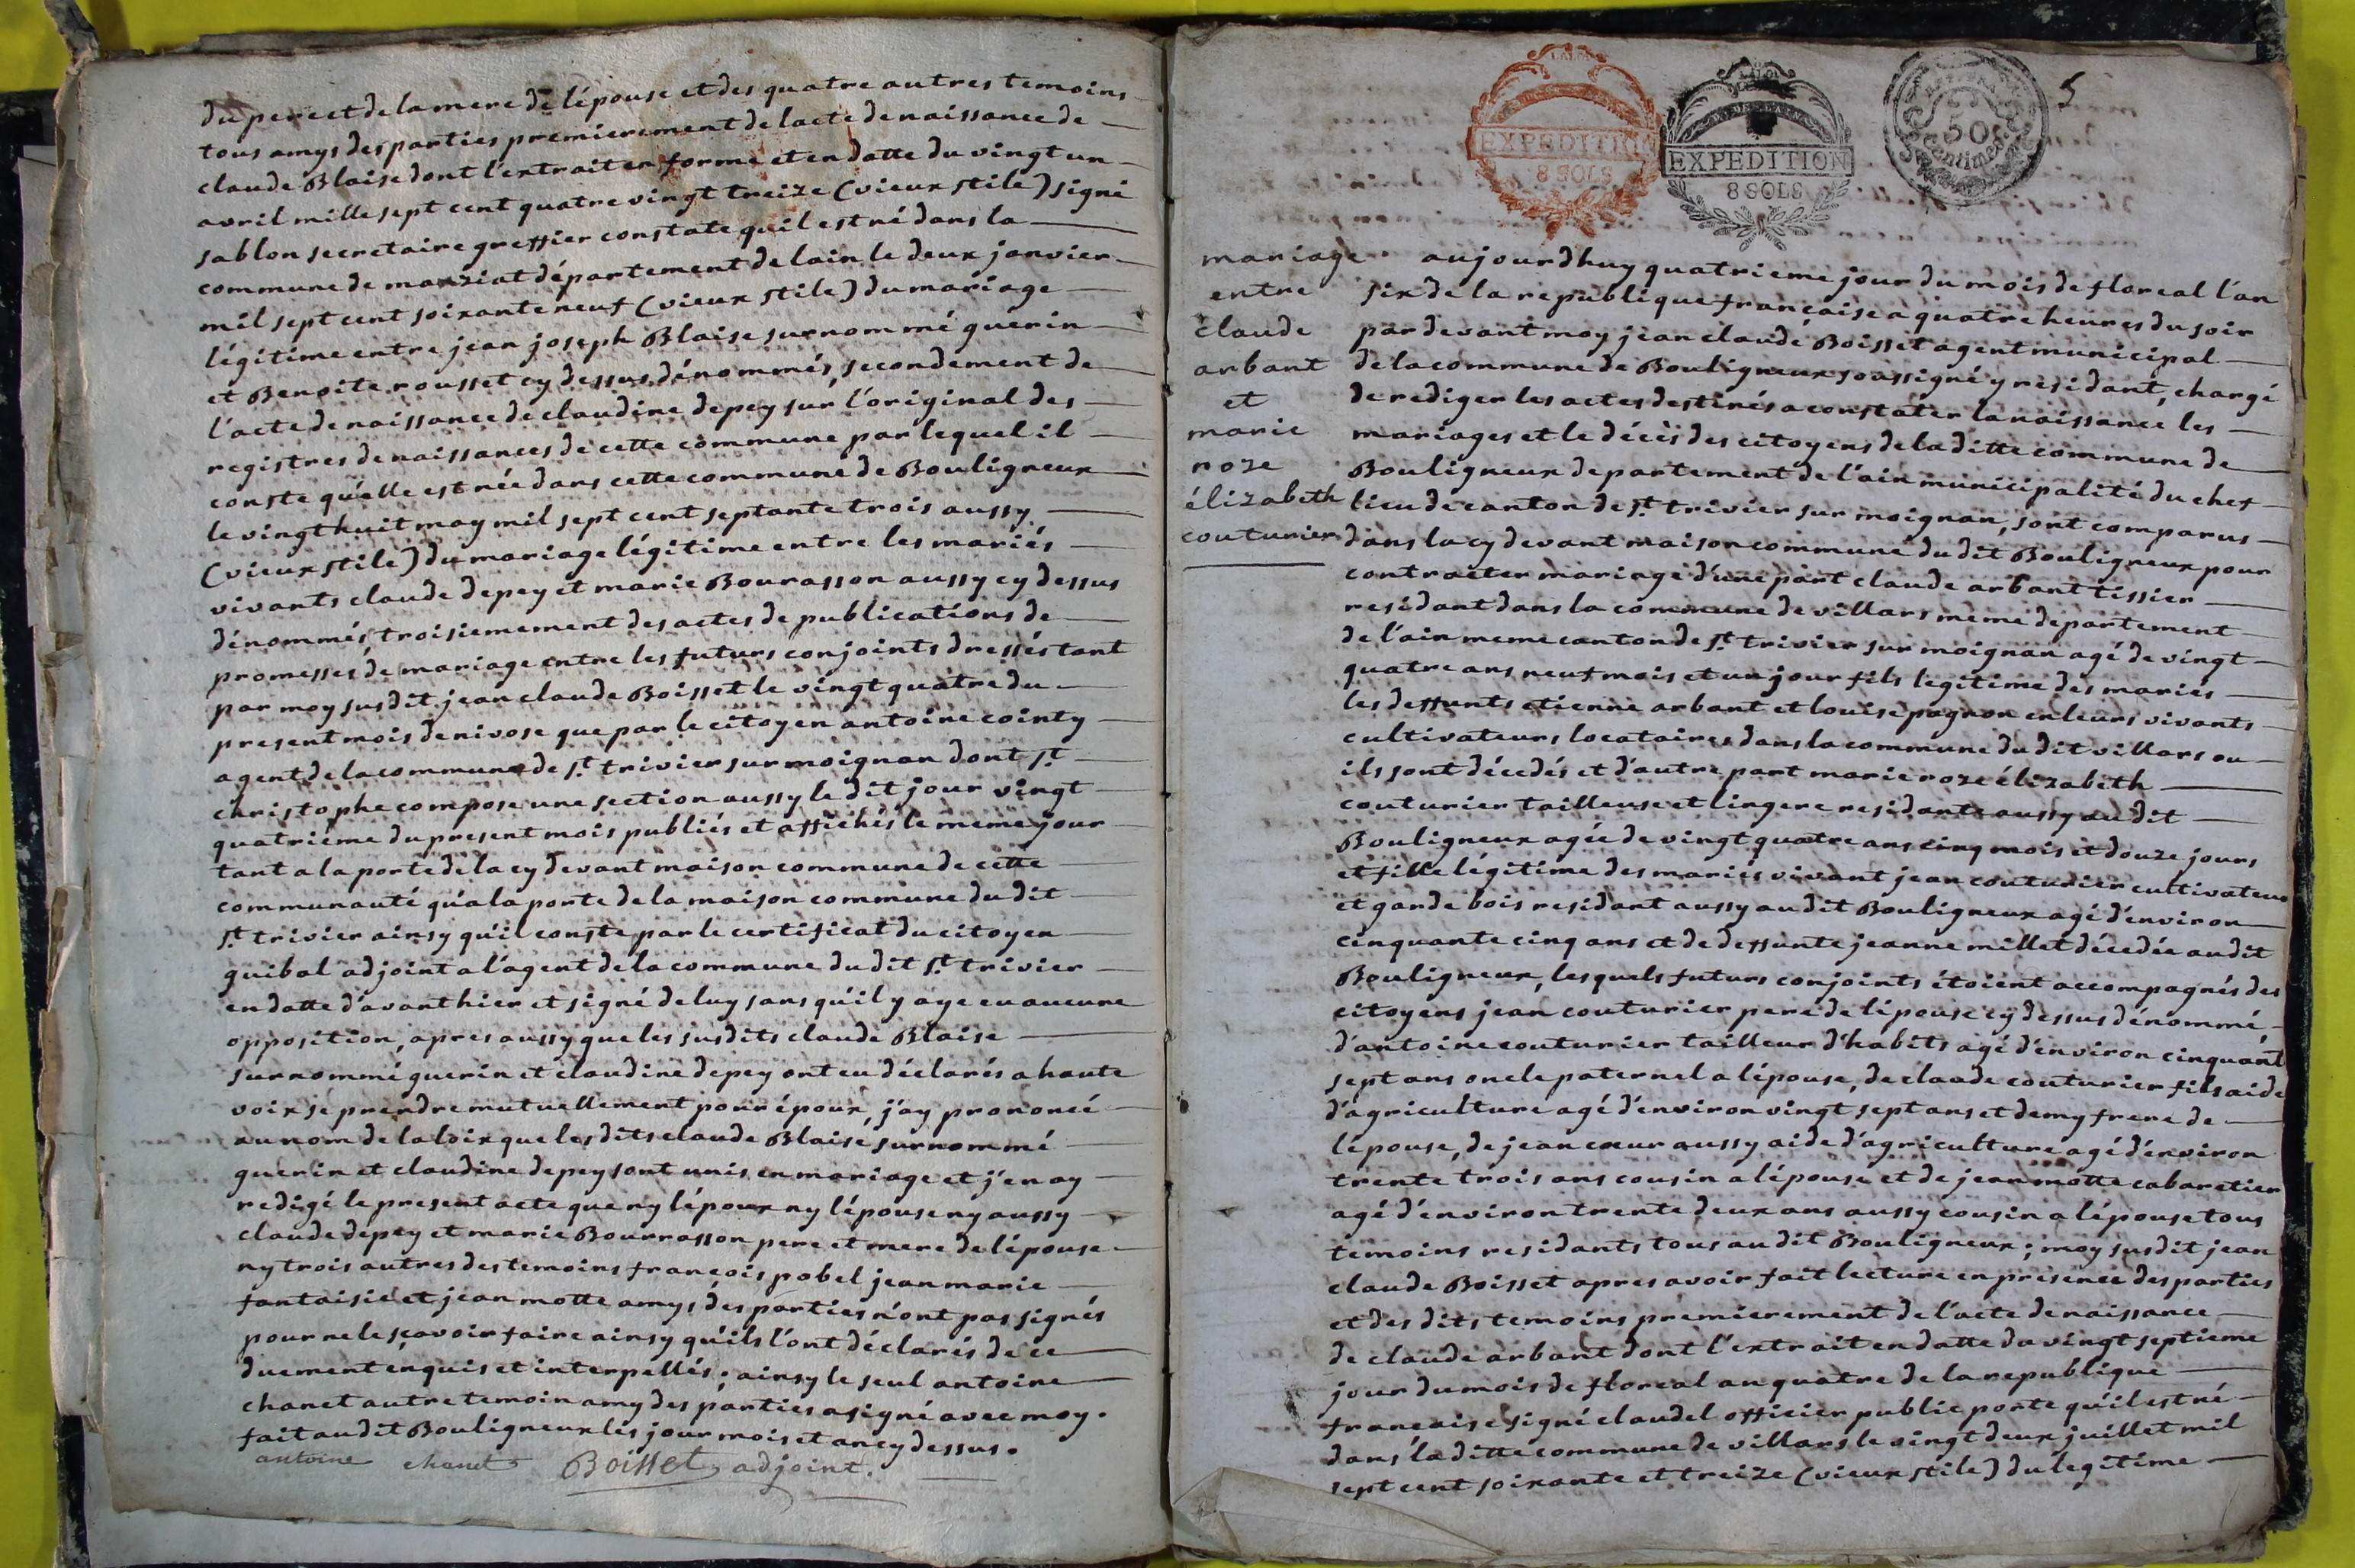 du pere et de la mere de lépouse et des quatre autres temoins
tous amys des parties premierement de lacte de naissance de
claude Blaise dont l'extrait en forme et en datte du vingt un
avril mille sept cent quatre vingt treize (vieux stile) signé
sablon secretaire greffier constate qu'il est né dans la
commune de manziat département de lain le deux janvier
mil sept cent soixante neuf (vieux stile) du mariage
légitime entre jean joseph Blaise surnommé guerin
et Benoite rousset cy dessus dénommés, secondement de
l'acte de naissance de claudine depey sur l'original des
registres de naissances de cette commune par lequel il
conste qu'elle est née dans cette commune de Bouligneux
le vingt huit may mil sept cent septante trois aussy
(vieux stile) du mariage légitime entre les mariés
vivants claude depey et marie Bourasson aussy cy dessus
dénommés troisiemement des actes de publications de
promesses de mariage entre les futurs conjoints dressés tant
par moy susdit jean claude Boisset le vingt quatre du
present mois de nivose que par le citoyen antoine cointy
agent de la commune de st trivier sur moignan dont st
christophe compose une section aussy le dit jour vingt
quatrieme du present mois publiés et affichés le meme jour
tant a la porte de la cy devant maison commune de cette
communauté qu'a la porte de la maison commune du dit
st trivier ainsy qu'il conste par le certificat du citoyen
guibal adjoint a l'agent de la commune du dit st trivier
en datte d'avant hier et signé de luy sans qu'il y aye eu aucune
opposition, apres aussy que les susdits claude Blaise
surnommé guerin et claudine depey ont eu déclarés a haute
voix se prendre mutuellement pour époux, j'ay prononcé
au nom de la loix que les dits claude Blaise surnommé
guerin et claudine depey sont unis en mariage et j'en ay
redigé le present acte que ny lépoux ny lépouse ny aussy
claude depey et marie Bourrasson pere et mere de lépouse
ny trois autres des temoins françois pobel jean marie
fantaisie et jean motte amys des parties n'ont pas signés
pour ne le sçavoir faire ainsy qu'ils l'ont déclarés de ce
duement enquis et interpellés ; ainsy le seul antoine
chanet autre temoin amy des parties a signé avec moy.
fait au dit Bouligneux les jour mois et an cy dessus.
antoine chanet Boisset adjoint.
LA LOI
EXPEDITION
8 SOLS
LA LOI
EXPEDITION
8 SOLS
50
Centimes
5
mariage
entre
claude
arbant
et
marie
roze
élizabeth
couturier
aujourdhuy quatrieme jour du mois de floreal l'an
six de la republique française a quatre heures du soir
par devant moy jean claude Boisset agent municipal
de la commune de Bouligneux soussigné y residant, chargé
de rediger les actes destinés a constater la naissance les
mariages et le décès des citoyens de la ditte commune de
Bouligneux departement de l'ain municipalité du chef
lieu de canton de st trivier sur moignan, sont comparus
dans la cy devant maison commune du dit Bouligneux pour
contracter mariage d'une part claude arbant tissier
residant dans la commune de villars meme departement
de l'ain meme canton de st trivier sur moignan agé de vingt
quatre ans neuf mois et un jour fils legitime des mariés
les deffunts etienne arbant et louise pagnon en leurs vivants
cultivateurs locataires dans la commune du dit villars ou
ils sont décedés et d'autre part marie roze élizabeth
couturier tailleuse et lingere residante aussy au dit
Bouligneux agée de vingt quatre ans cinq mois et douze jours
et fille légitime des mariés vivant jean couturier cultivateur
et garde bois residant aussy au dit Bouligneux agé d'environ
cinquante cinq ans et de deffunte jeanne millet décedée au dit
Bouligneux, lesquels futurs conjoints étoient accompagnés des
citoyens jean couturier pere de lépouse cy dessus dénommé
d'antoine couturier tailleur d'habits agé d'environ cinquant
sept ans oncle paternel a lépouse, de claude couturier fils aide
d'agriculture agé d'environ vingt sept ans et demy frere de
lépouse, de jean cœur aussy aide d'agriculture agé d'environ
trente trois ans cousin a lépouse et de jean motte cabaretier
agé d'environ trente deux ans aussy cousin a lépouse tous
temoins residants tous au dit Bouligneux ; moy susdit jean
claude Boisset apres avoir fait lecture en présence des parties
et des dits temoins premierement de l'acte de naissance
de claude arbant dont l'extrait en datte du vingt septieme
jour du mois de floreal an quatre de la republique
française signé claudel officier public porte qu'il est né
dans la ditte commune de villars le vingt deux juillet mil
sept cent soixante et treize (vieux stile) du legitime